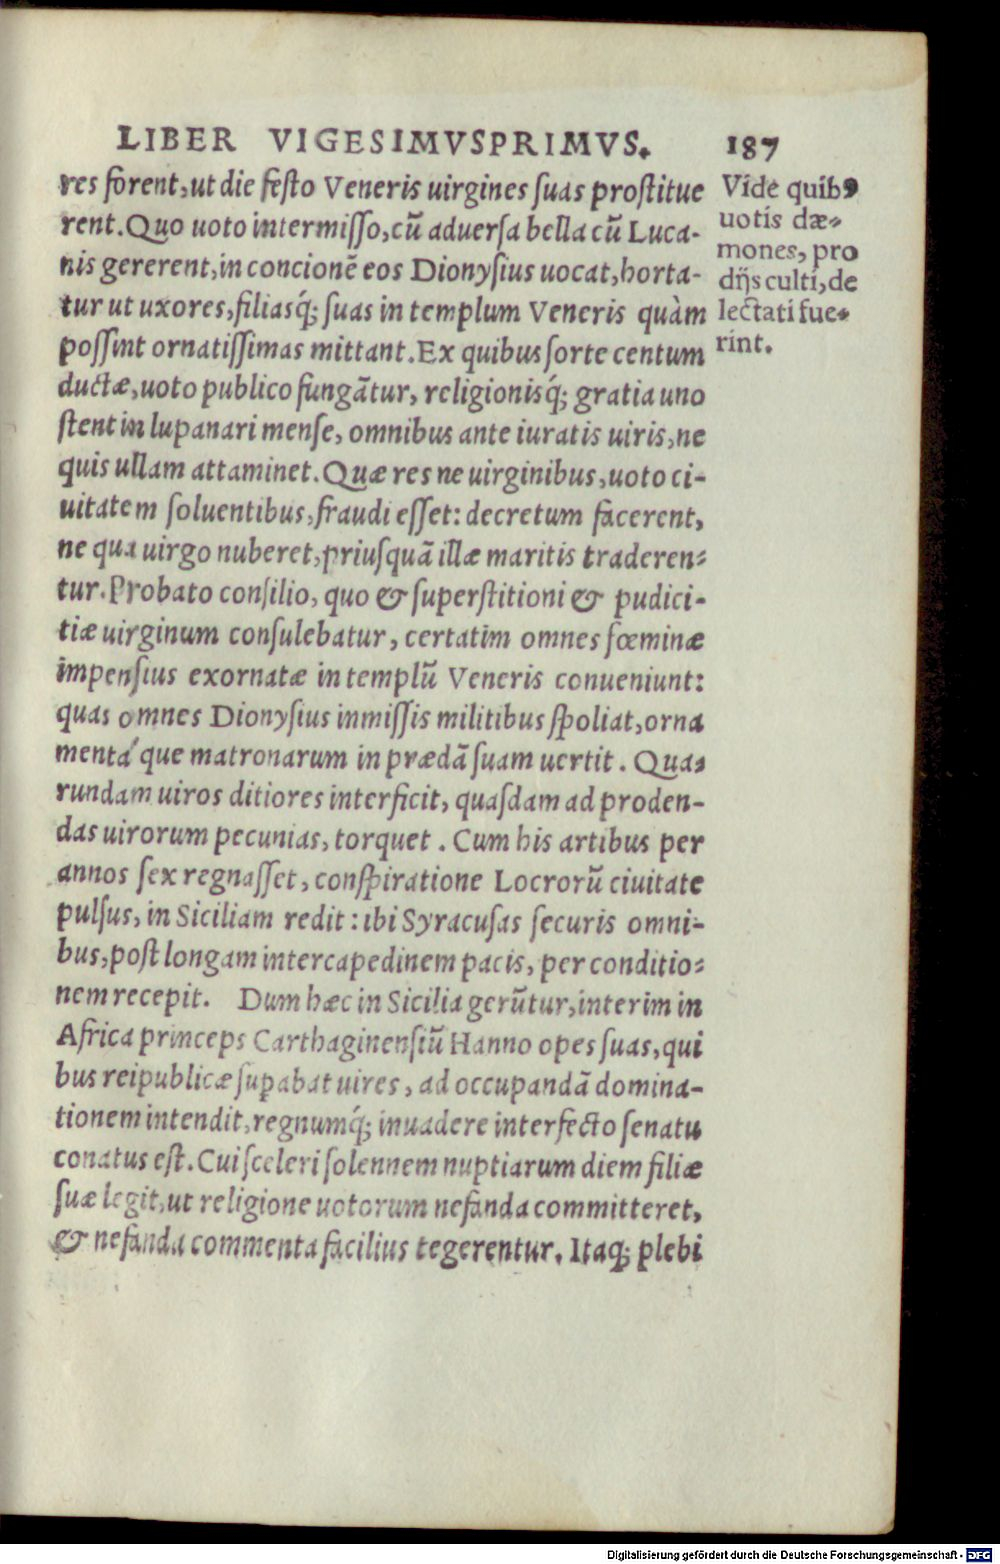 LIBER VIGESIMVSPRIMVS. 187
res forent, ut die festo Veneris uirgines suas prostitue
rent. Quo uoto intermisso, cũ aduersa bella cũ Luca-
nis gererent, in concionẽ eos Dionysius uocat, horta-
tur ut uxores, filiasq́; suas in templum Veneris quàm
possint ornatissimas mittant. Ex quibus sorte centum
ductæ, uoto publico fungãtur, religionisq́; gratia uno
stent in lupanari mense, omnibus ante iuratis uiris, ne
quis ullam attaminet. Quæ res ne uirginibus, uoto ci-
uitatem soluentibus, fraudi esset: decretum facerent,
ne qua uirgo nuberet, priusquã illæ maritis traderen-
tur. Probato consilio, quo & superstitioni & pudici-
tiæ uirginum consulebatur, certatim omnes fœminæ
impensius exornatæ in templũ Veneris conueniunt:
quas omnes Dionysius inmissis militibus spoliat, orna
mentá que matronarum in prædã suam uertit. Qua-
rundam uiros ditiores interficit, quasdam ad proden-
das uirorum pecunias, torquet. Cum his artibus per
annos sex regnasset, conspiratione Locrorũ ciuitate
pulsus, in Siciliam redit: ibi Syracusas securis omni-
bus, post longam intercapedinem pacis, per conditio-
nem recepit. Dum hæc in Sicilia gerũtur, interim in
Africa princeps Carthaginensiũ Hanno opes suas, qui
bus reipublicæ supabat uires, ad occupandã domina-
tionem intendit, regnumq́; inuadere interfecto senatu
conatus est. Cui sceleri solennem nuptiarum diem filiæ
suæ legit, ut religione uotorum nefanda committeret,
& nefanda commenta facilius tegerentur. Itaq; plebi
Vide quibꝰ
uotis dæ-
mones, pro
dijs culti, de
lectati fue-
rint.
Digitalisierung gefördert durch die Deutsche Forschungsgemeinschaft - DFG